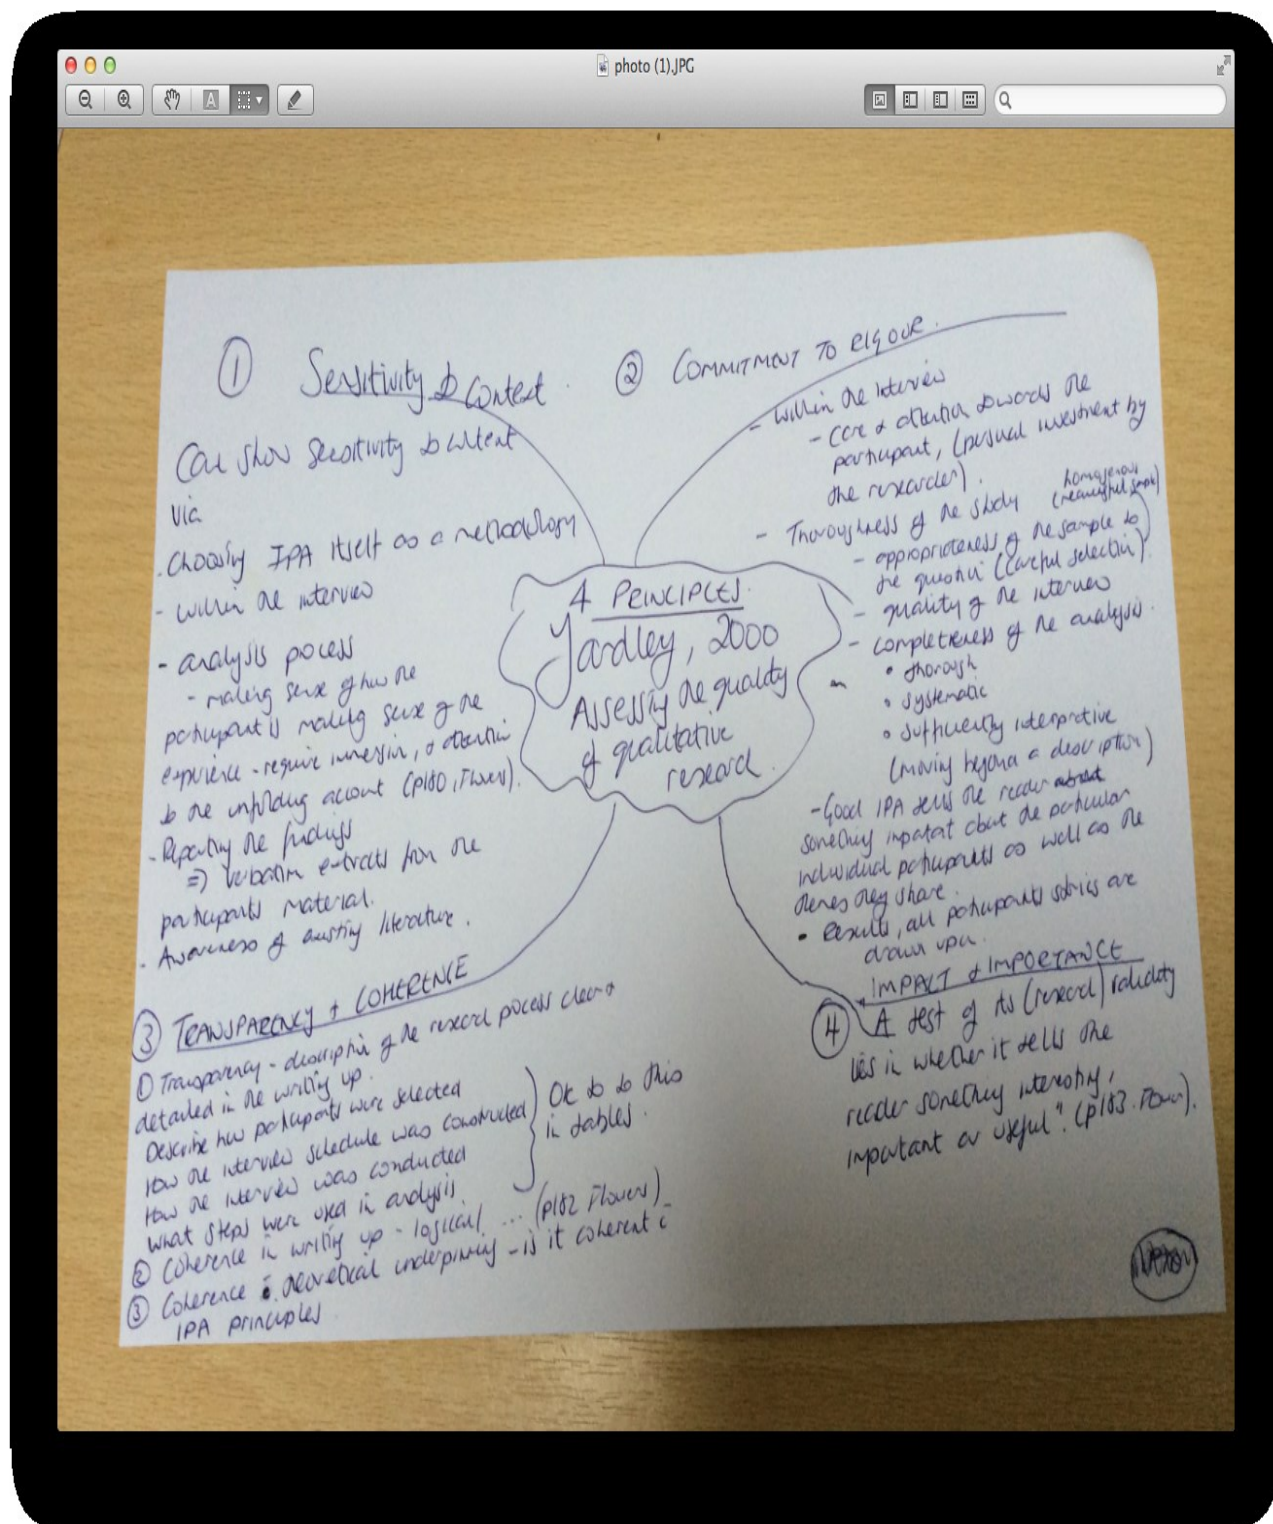 photo (1).JPG
① Sensitivity to Context
Can show sensitivity to context
via
- Choosing IPA itself as a methodology
- within the interview
- analysis process
- making sense of how the
participant is making sense of the
experience - require immersion, & attention
to the unfolding account (p180, Flowers).
- Reporting the findings
=> verbatim extracts from the
participants material.
- Awareness of existing literature.
② COMMITMENT TO RIGOUR.
- within the interview
- care & attention towards the
participant, (personal investment by
the researcher).
- Thoroughness of the study
homogenous
(meaningful sample)
- appropriateness of the sample to
the question (careful selection).
- quality of the interview
- completeness of the analysis.
• thorough
• systematic
• sufficiently interpretive
(moving beyond a description)
- Good IPA tells the reader
something important about the particular
individual participants as well as the
themes they share.
• Results, all participants stories are
drawn upon.
4 PRINCIPLES.
Yardley, 2000
Assessing the quality
of qualitative
research.
③ TRANSPARENCY + COHERENCE
① Transparency - description of the research process clear +
detailed in the writing up.
Describe how participants were selected
How the interview schedule was constructed
How the interview was conducted
what steps were used in analysis.
Ok to do this
in tables.
② Coherence in writing up - logical ... (p182 Flowers)
③ Coherence theoretical underpinning - is it coherent c̄
IPA principles.
IMPACT & IMPORTANCE
④ A test of its (research) validity
lies in whether it tells the
reader something interesting,
important or useful". (p183. Flowers).